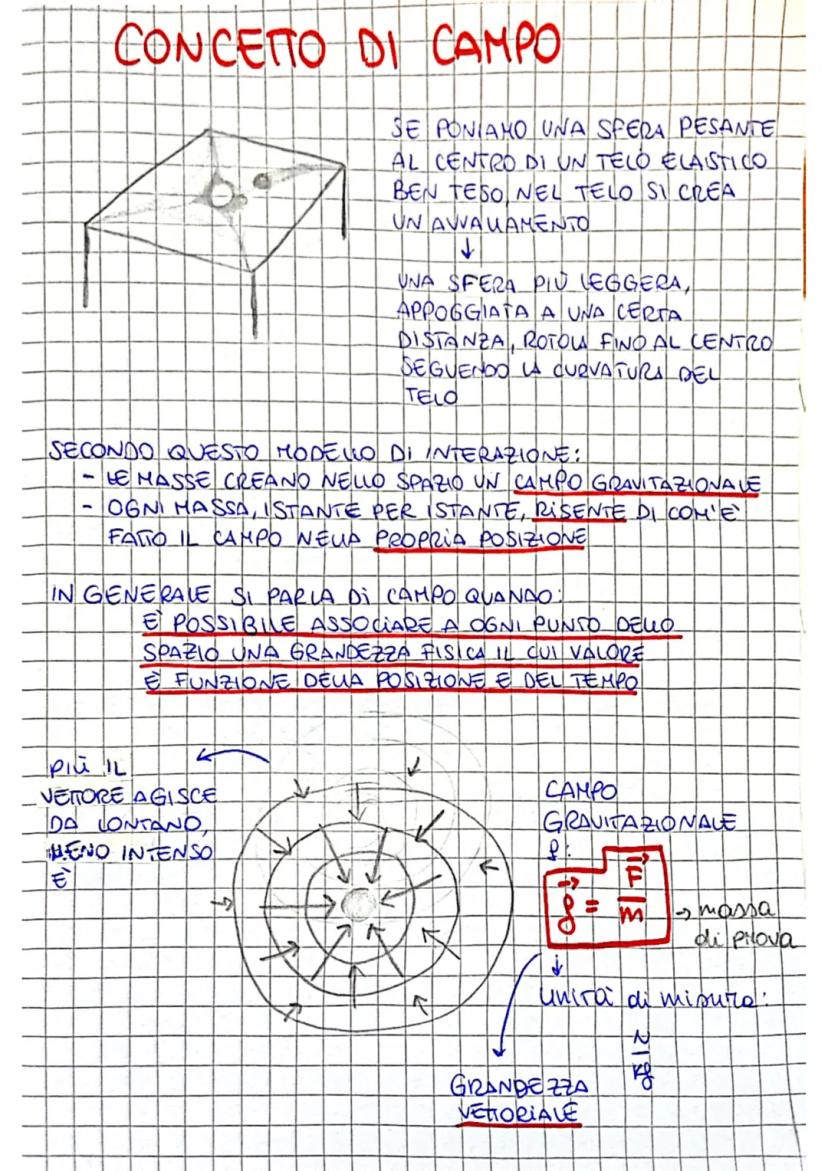 CONCETTO DI CAMPO
SE PONIAMO UNA SFERA PESANTE
AL CENTRO DI UN TELO ELASTICO
BEN TESO, NEL TELO SI CREA
UN AVVALLAMENTO
↓
UNA SFERA PIÙ LEGGERA,
APPOGGIATA A UNA CERTA
DISTANZA, ROTOLA FINO AL CENTRO
SEGUENDO LA CURVATURA DEL
TELO
SECONDO QUESTO MODELLO DI INTERAZIONE:
- LE MASSE CREANO NELLO SPAZIO UN CAMPO GRAVITAZIONALE
- OGNI MASSA, ISTANTE PER ISTANTE, RISENTE DI COM'È
FATTO IL CAMPO NELLA PROPRIA POSIZIONE
IN GENERALE SI PARLA DI CAMPO QUANDO:
È POSSIBILE ASSOCIARE A OGNI PUNTO DELLO
SPAZIO UNA GRANDEZZA FISICA IL CUI VALORE
È FUNZIONE DELLA POSIZIONE E DEL TEMPO
PIÙ IL
VETTORE AGISCE
DA LONTANO,
MENO INTENSO
È
CAMPO
GRAVITAZIONALE
g:
g⃗ = F⃗/m → massa
di prova
↓
Unità di misura:
N/kg
GRANDEZZA
VETTORIALE